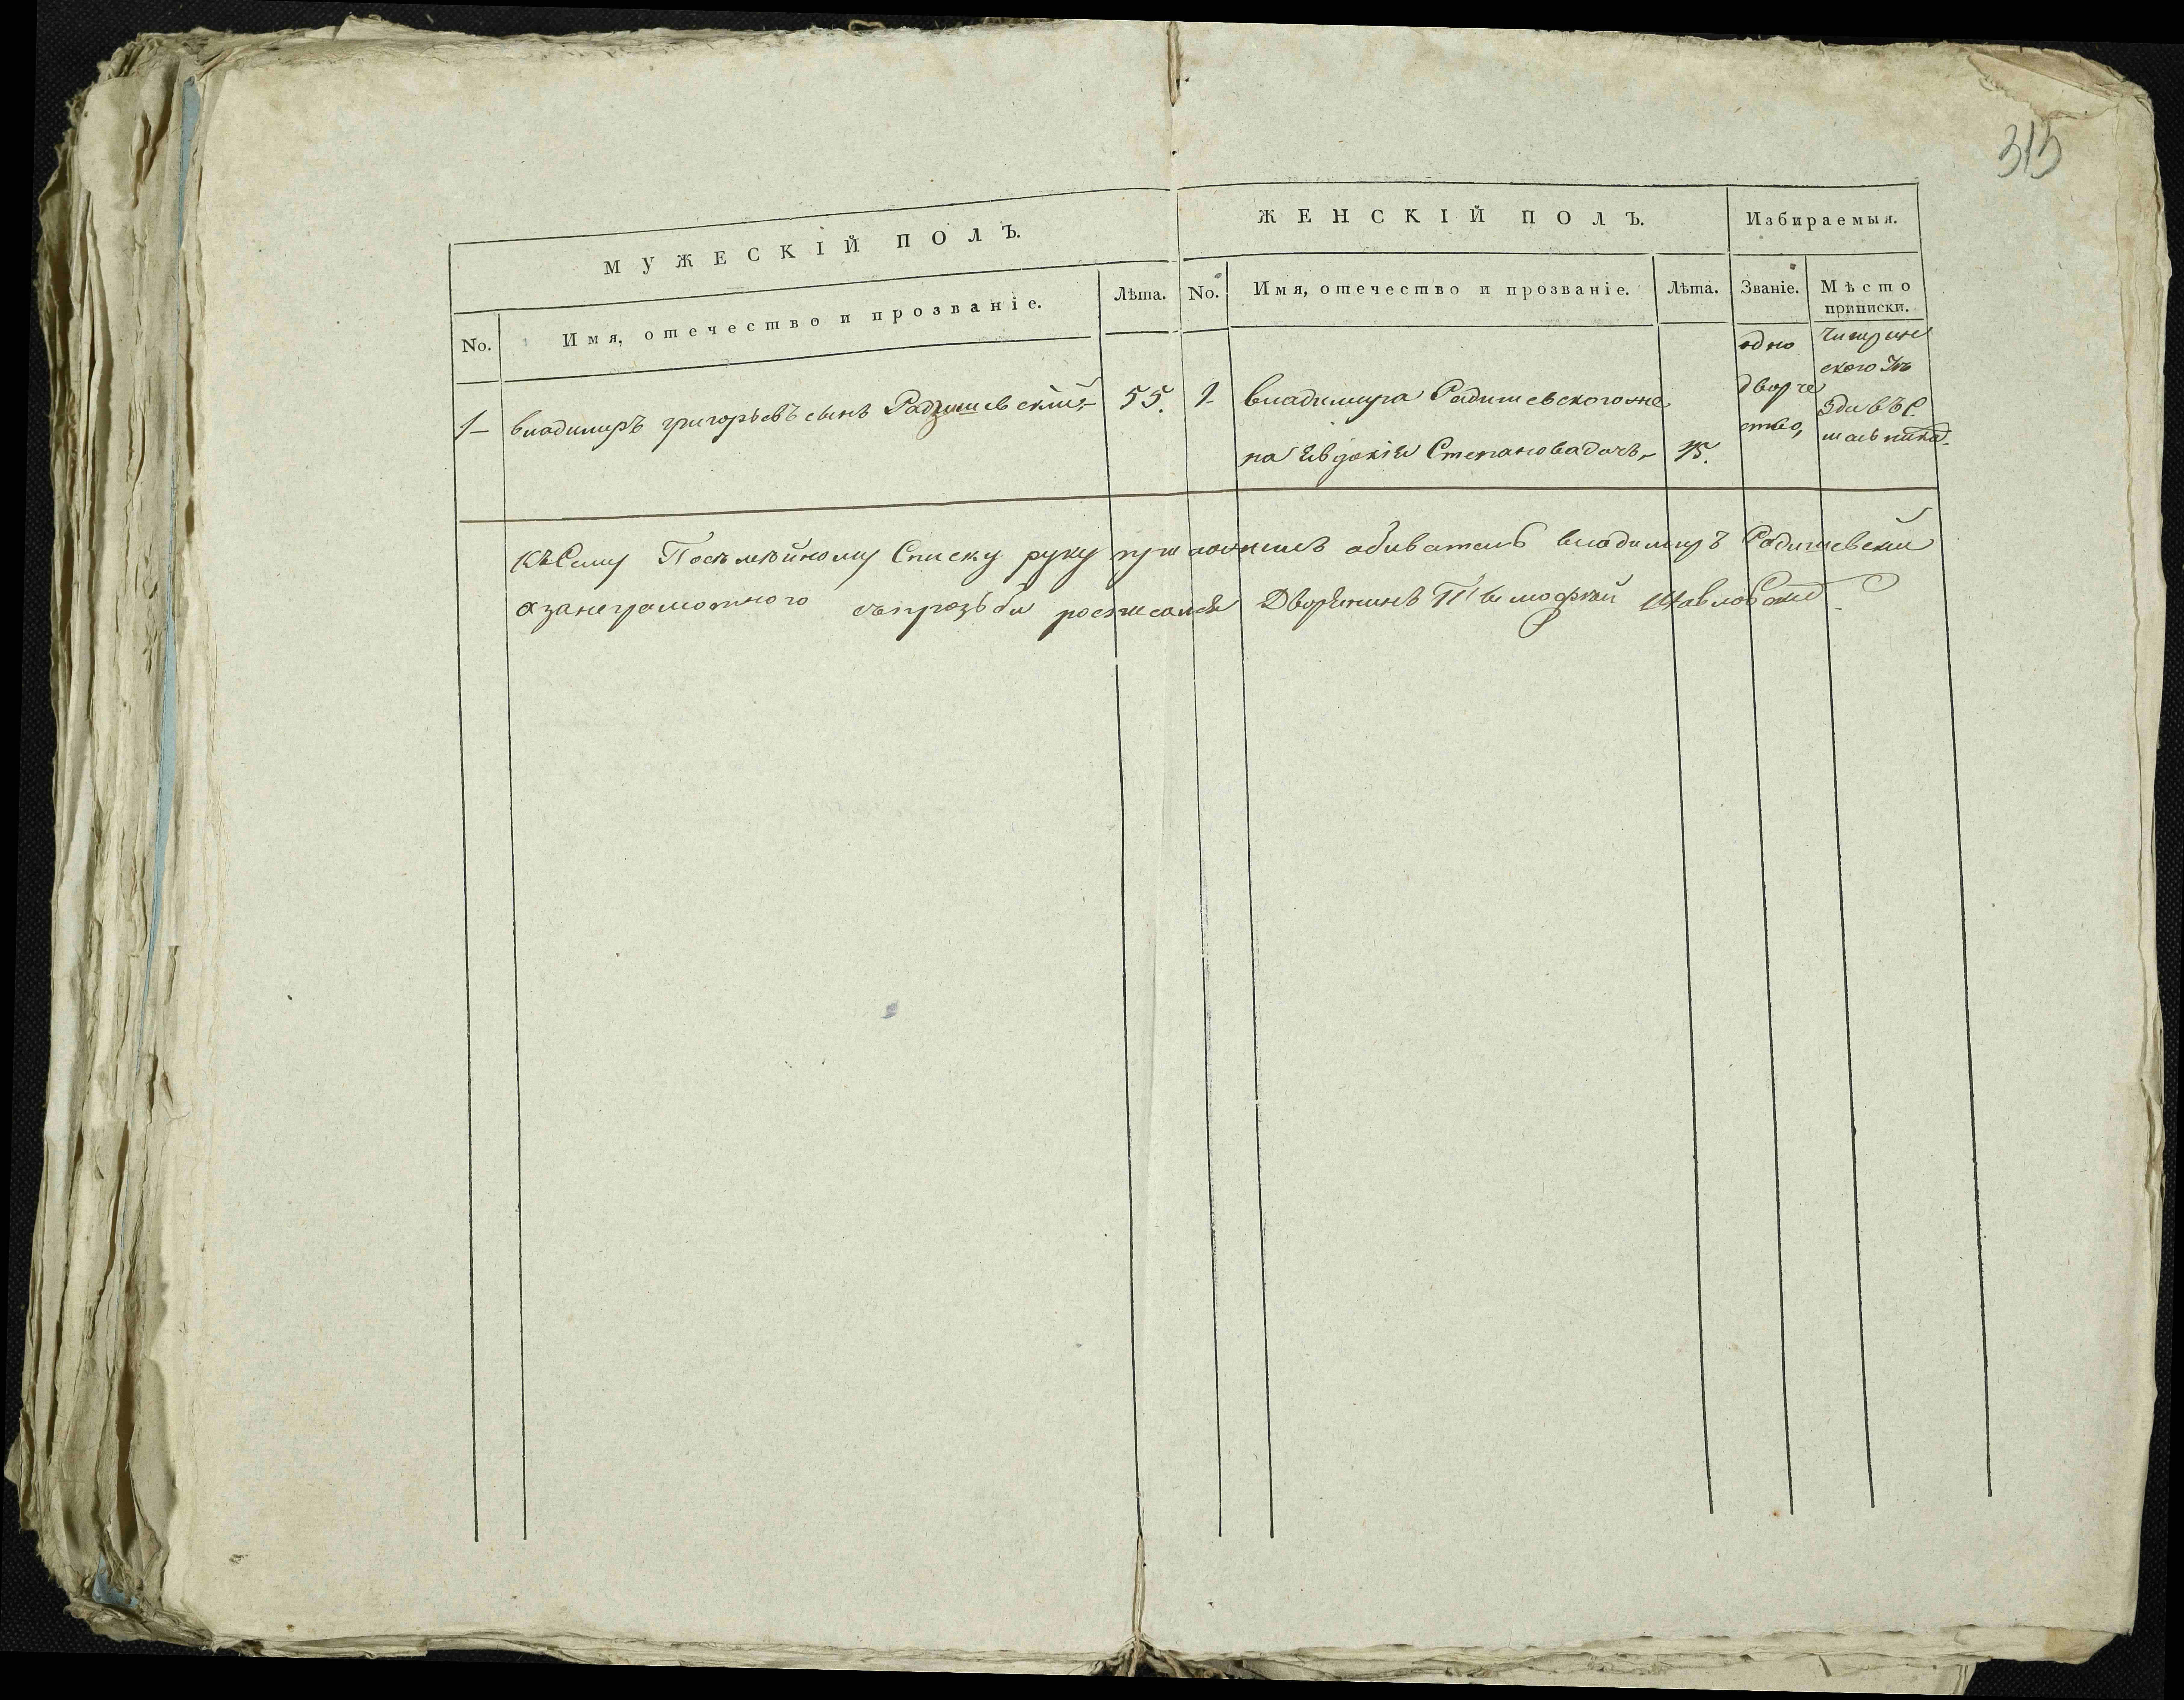 315
МУЖЕСКІЙ ПОЛЪ.
ЖЕНСКІЙ ПОЛЪ.
Избираемыя.
No.
Имя, отечество и прозваніе.
Лѣта.
No.
Имя, отечество и прозваніе.
Лѣта.
Званіе.
Мѣсто
приписки.
1
владимиръ григорьевъ сынъ Радзишевскии
55.
1
владимира Радишевского же
на Евдокія Степанова дочь
одно
дворче
ство,
Чигрин
ского Уѣ
зда въ С.
къ Сему Посѣмейному Списку руку приложилъ обиватель владимиръ Радишевскии
а за неграмотного съ прозьби росписался Дворянинъ Тимофѣй